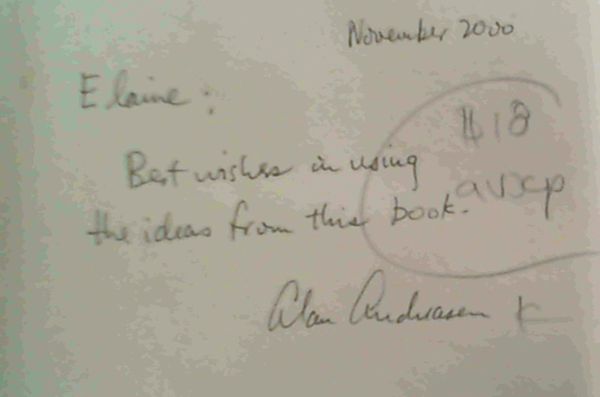 November 2000
Elaine:
$18
Best wishes in using
the ideas from this book.
Alan Andreasen